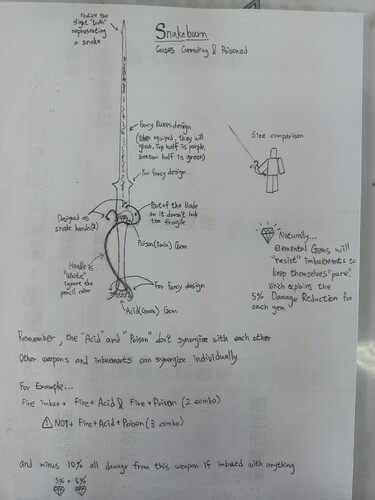 Notice the
slight "Curve"
representing
a snake
Snakeburn
Causes Corroding & Poisoned
Fancy Runes design
(When equiped, they will
glow, Top half is purple,
bottom half is green)
For fancy design
Size comparison
Designed as
snake heads(2)
Part of the blade
so it doesn't look
too fragile
Poison(Toxic) Gem
Handle is
"White",
ignore the
pencil color
For fancy design
Acid(Green) Gem
Naturally...
Elemental Gems will
"resist" imbuements to
keep themselves "pure".
Which explains the
5% Damage Reduction for
each gem
Remember, the "Acid" and "Poison" don't synergize with each other
Other weapons and imbuements can synergize individually
For Example...
Fire imbue + Fire + Acid & Fire + Poison (2 combo)
! NOT + Fire + Acid + Poison (3 combo)
and minus 10% all damage from this weapon if imbued with anything
5% + 5%